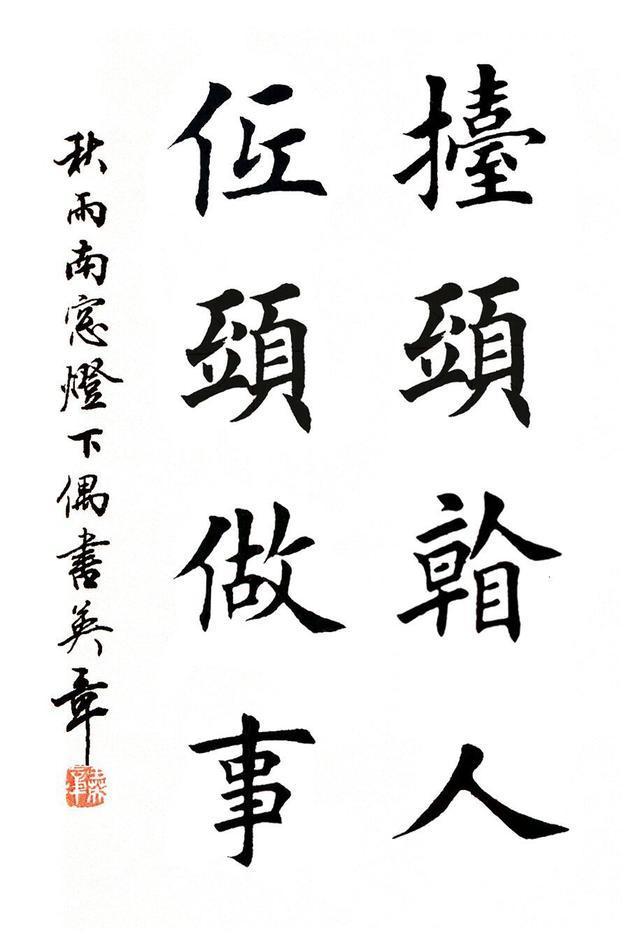 擡頭看人
低頭做事
秋雨南窓燈下偶書英章